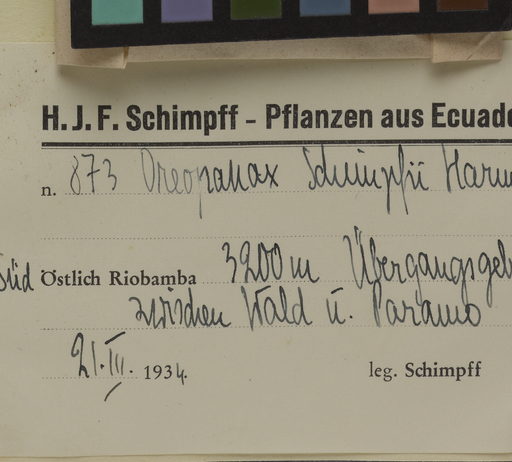 H. J. F. Schimpff - Pflanzen aus Ecuad
n. 873 Oreopanax Schimpfii Harm
Süd Östlich Riobamba 3200 m Übergangsgeb
zwischen Wald u. Paramo
21. III. 1934. leg. Schimpff